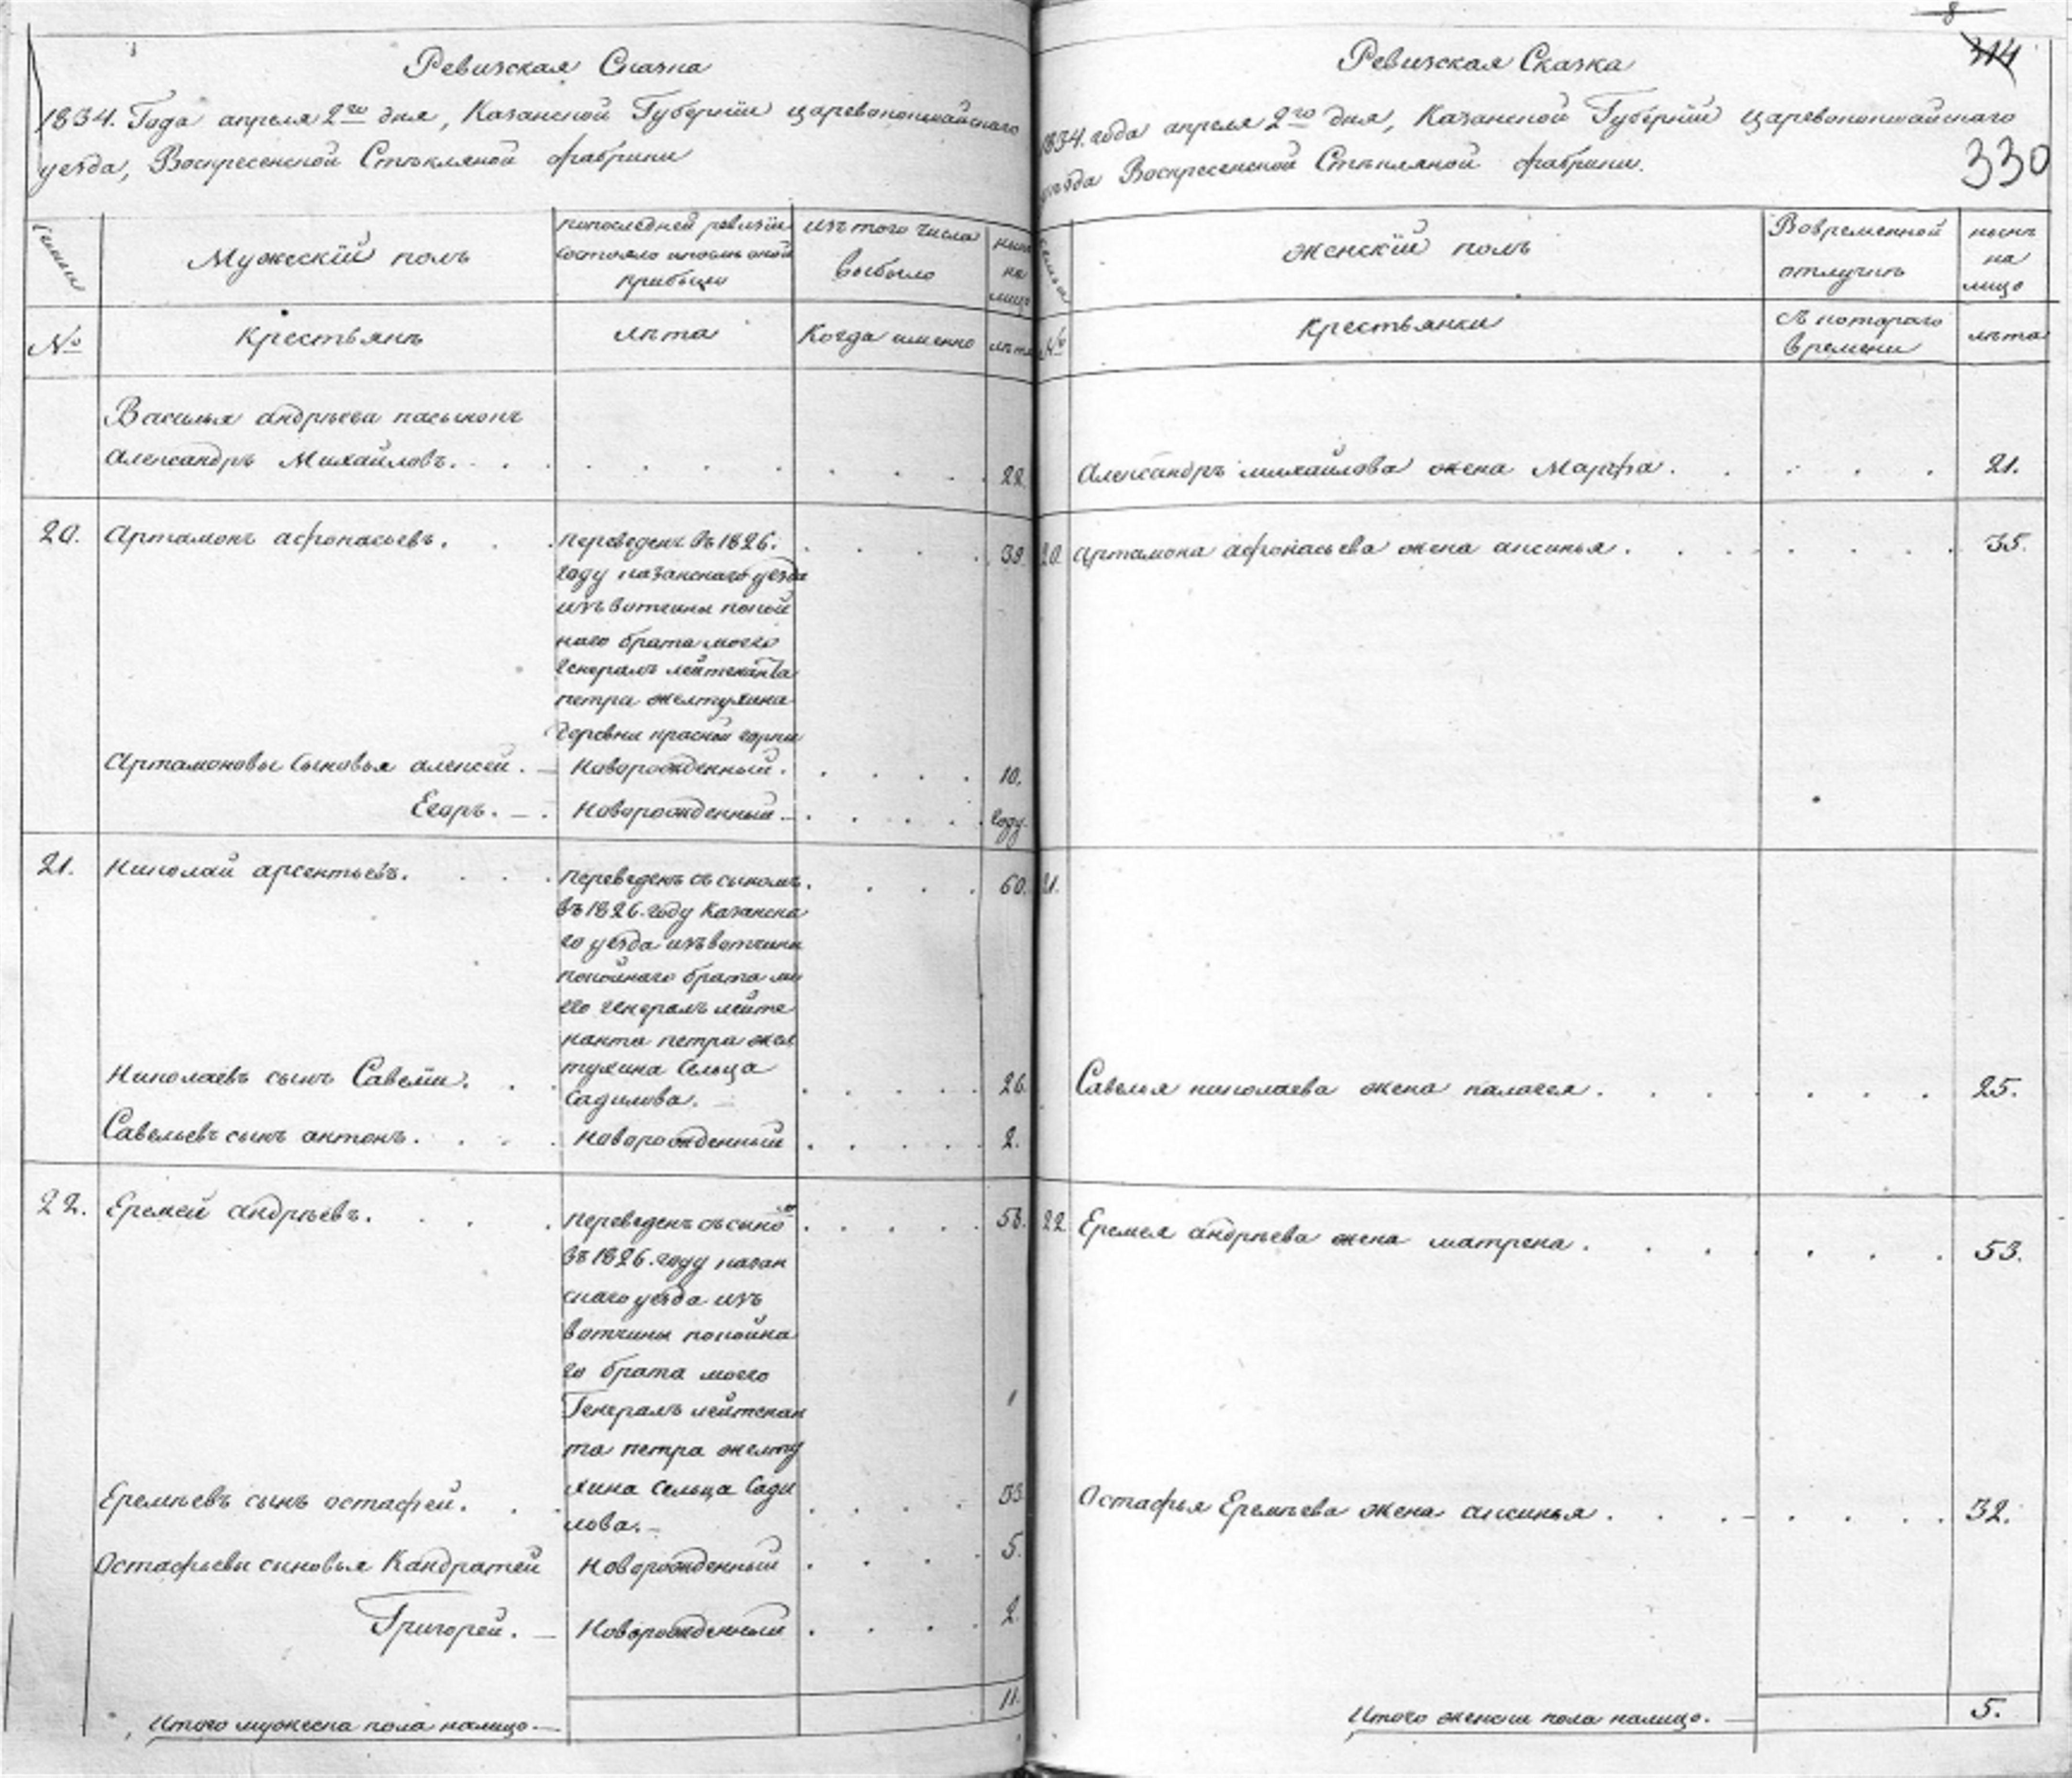 Ревизская Сказка
1834. Года апреля 2го дня, Казанской Губернїи царевококшайскаго
уезда, Воскресенской Стекляной фабрики
Мужескїй полъ
попоследней ревизїи
состояло ипосле оной
прибыло
изъ того числа
выбыло
ныне
на
лицо
№
Крестьянъ
лѣта
Когда именно
лѣта
Василья андрѣева пасынокъ
Александръ Михайловъ.
22.
20.
Артамонъ афонасьевъ.
переведенъ въ 1826.
39.
году казанскаго уезда
изъ вотчины покой
наго брата моего
генералъ лейтенанта
петра желтухина
деревни красной горки
Артамоновы сыновья алексей.
Новорожденный.
10.
Егоръ.
Новорожденный
году.
21.
Николай арсентьевъ.
переведенъ съ сыномъ
60.
въ 1826. году Казанска
го уезда изъ вотчины
покойнаго брата мо
его генералъ лейте
нанта петра жел
тухина Сельца
Николаевъ сынъ Савелїй.
Садилова.
26.
Савельевъ сынъ антонъ.
Новорожденный
2.
22.
Еремей андрѣевъ.
переведенъ съ сыном
58.
въ 1826. году казан
скаго уезда изъ
вотчины покойна
го брата моего
Генералъ лейтенан
та петра желту
хина Сельца Сади
Еремѣевъ сынъ остафей.
лова.
33.
Остафьевы сыновья Кандратей
Новорожденный
5.
Григорей.
Новорожденный
2.
Итого мужеска пола налицо.
11.
8
314
Ревизская Сказка
1834. года апреля 2го дня, Казанской Губернїи царевококшайскаго
уезда Воскресенской Стекляной фабрики.
330
женскїй полъ
Вовременной
отлучкѣ
нынѣ
на
лицо
№
Крестьянки
съ котораго
времени
лѣта
Александръ михайлова жена Марфа.
21.
20.
Артамона афонасьева жена аксинья.
35.
21.
Савелья николаева жена палагея.
25.
22.
Еремея андрѣева жена матрена.
53.
Остафья Еремѣева жена аксинья.
32.
Итого женска пола налицо.
5.